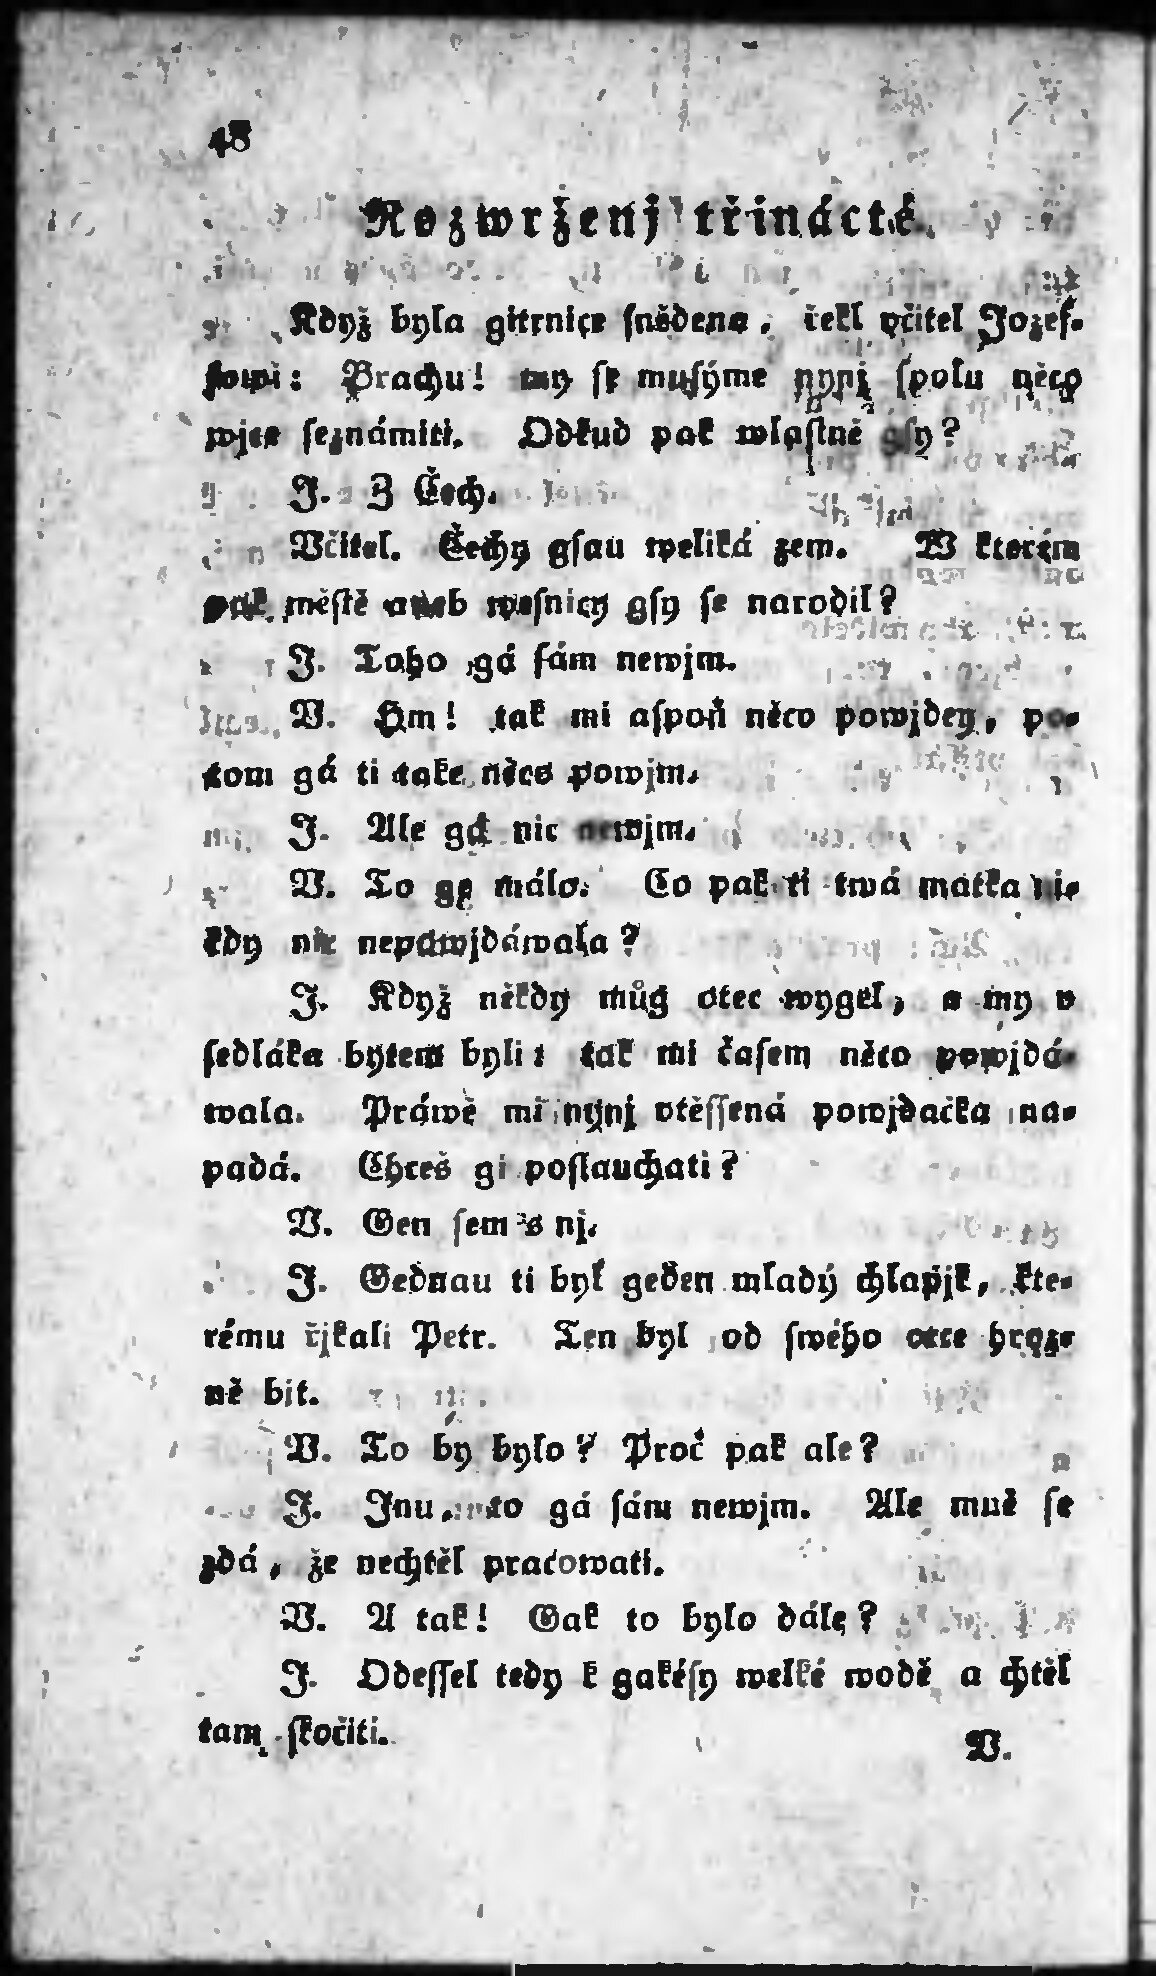 48
Rozwrženj třinácté.
Když byla gitrnice snědena, řekl včitel Jozef-
sowi: Brachu! my se musýme nynj spolu něco
wjce seznámiti. Odkud pak wlastně gsy?
J. Z Čech.
Včitel. Čechy gsau weliká zem. W kterém
pak městě aneb wesnicy gsy se narodil?
J. Toho gá sám newjm.
V. Hm! tak mi aspoň něco powjdey, po-
tom gá ti take něco powjm.
J. Ale gá nic newjm.
V. To ge málo. Co pak ti twá matka ni-
kdy nic nepowjdáwala?
J. Když někdy můg otec wygel, a my v
sedláka bytem byli: tak mi časem něco powjdá-
wala. Práwě mi nynj vtěssená powjdačka na-
padá. Chceš gi poslauchati?
V. Gen sem s nj.
J. Gednau ti byl geden mladý chlapjk, kte-
rému řjkali Petr. Ten byl od swého otce hroz-
ně bit.
V. To by bylo? Proč pak ale?
J. Jnu, to gá sám newjm. Ale mně se
zdá, že nechtěl pracowati.
V. A tak! Gak to bylo dále?
J. Odessel tedy k gakésy welké wodě a chtěl
tam skočiti.
V.